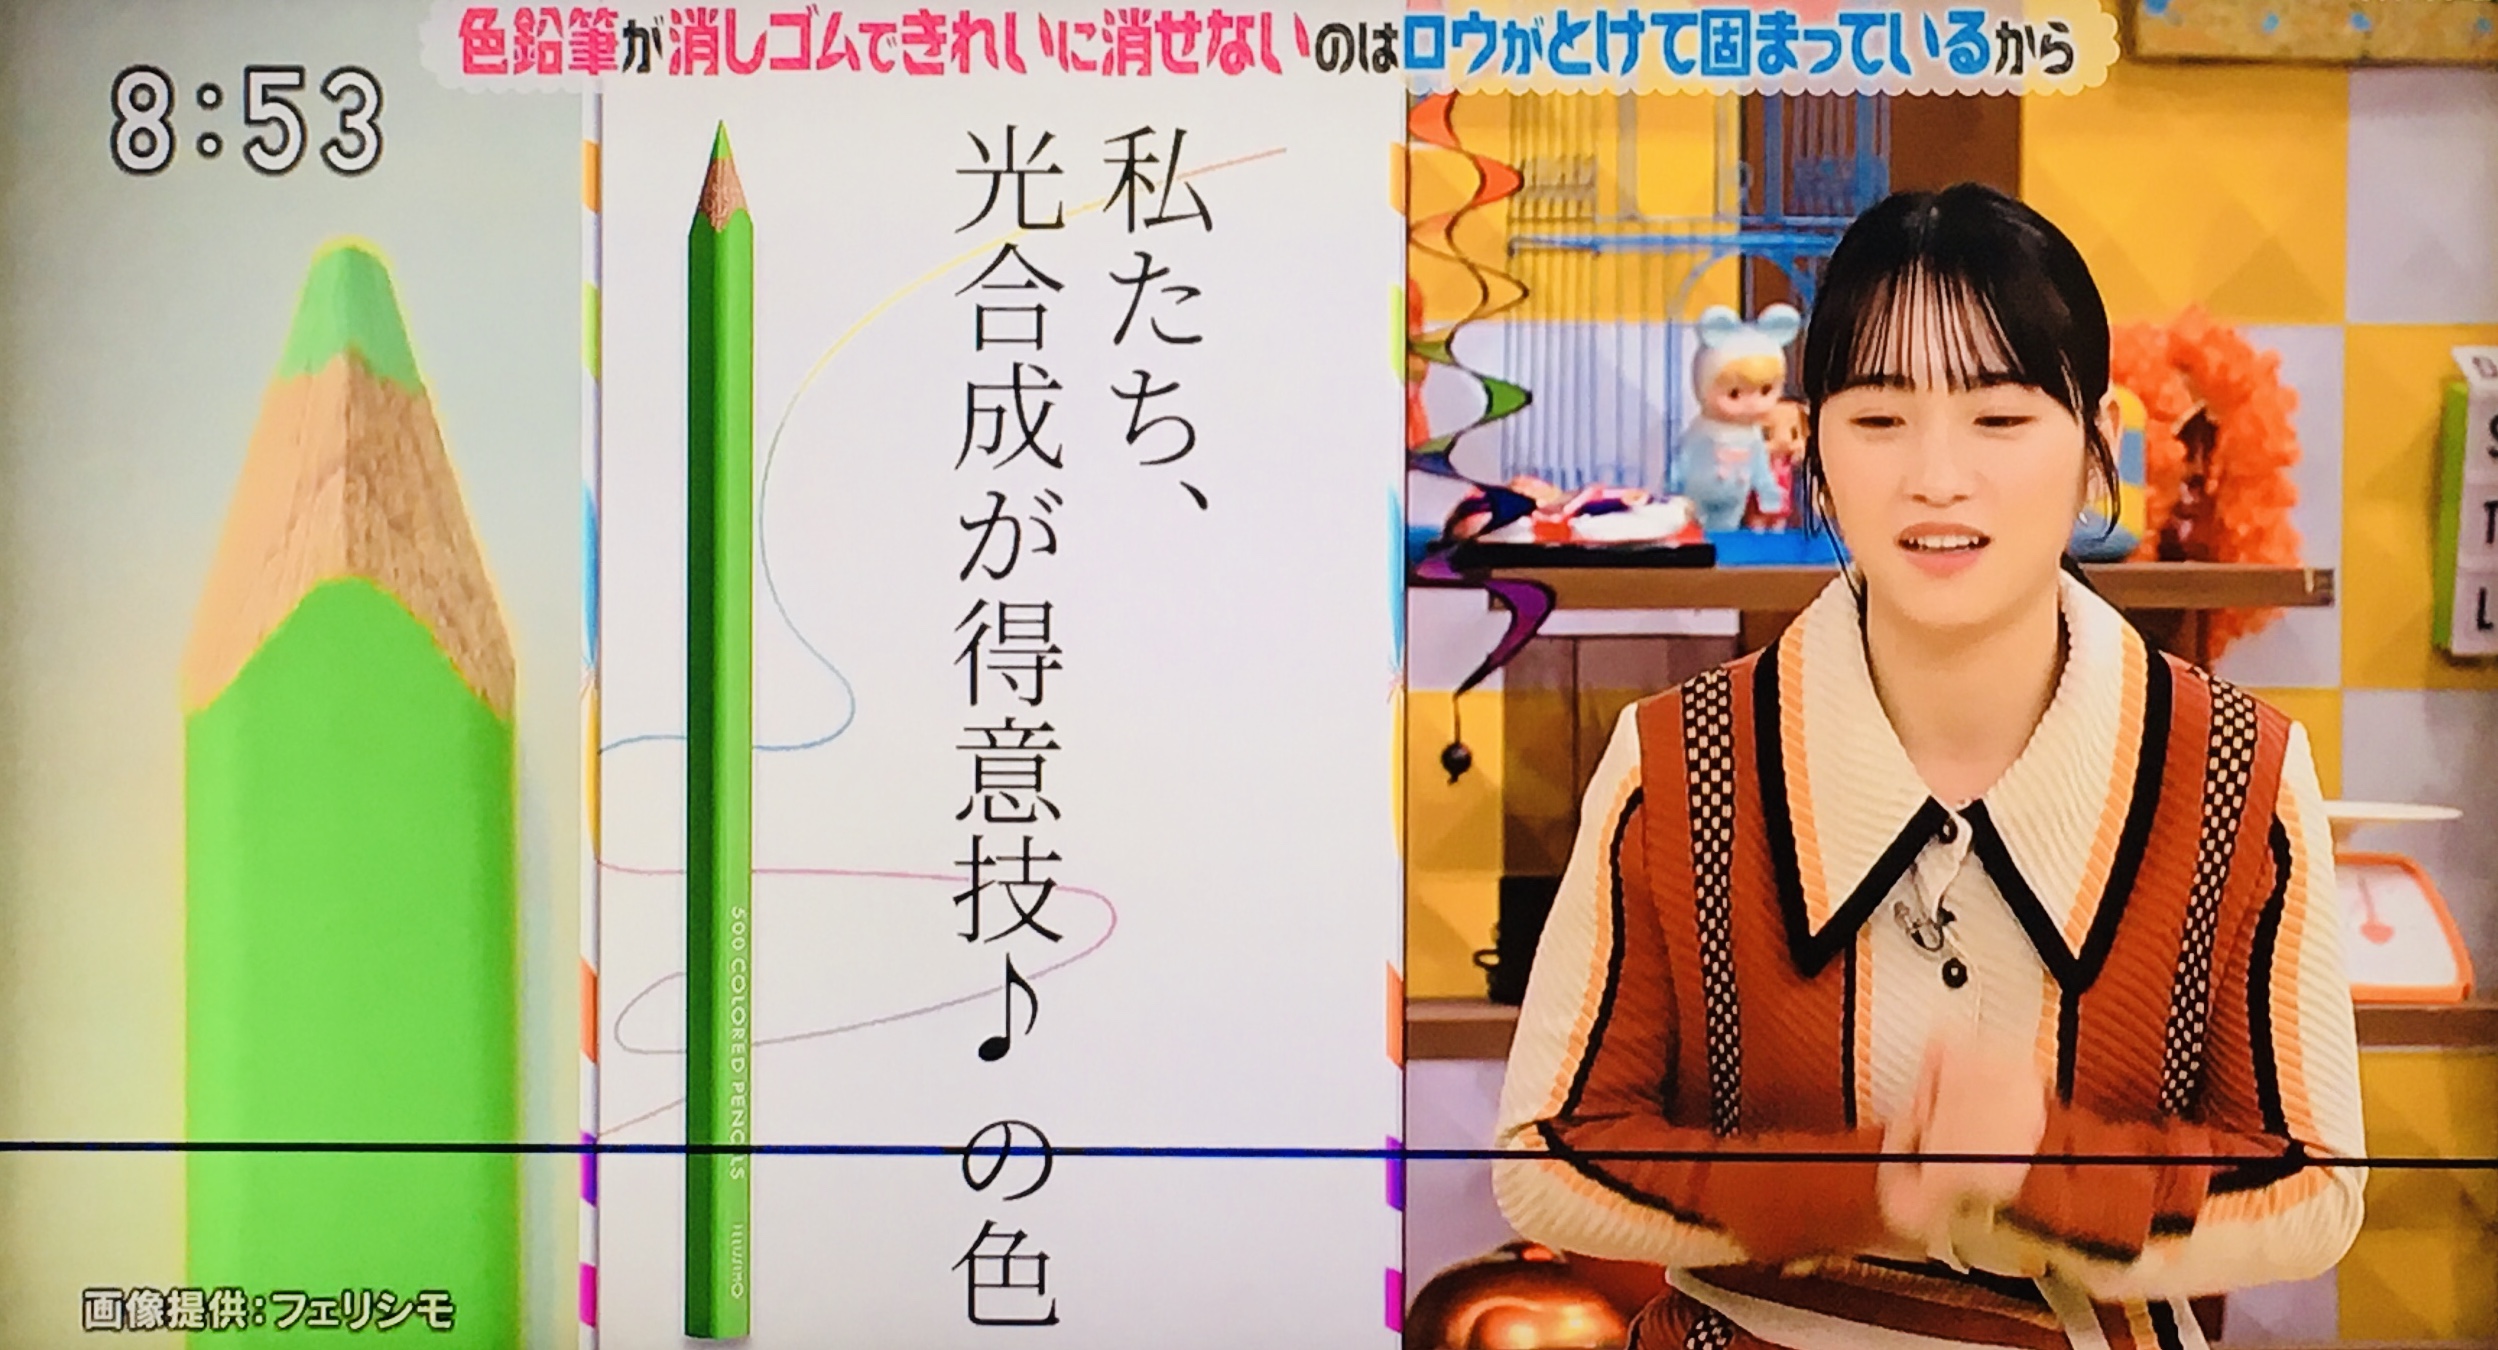 色鉛筆が消しゴムできれいに消せないのはロウがとけて固まっているから
8:53
私たち、
光合成が得意技♪の色
500 COLORED PENCILS
画像提供:フェリシモ
S
T
L